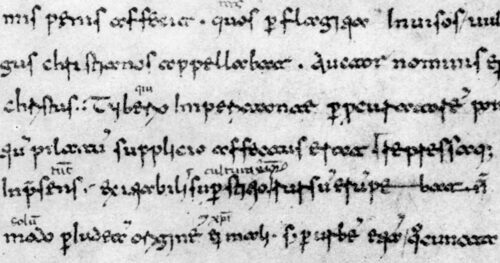 mis penis affecit . quos p flagitia Invisos / vul
gus christianos appellabat . Auctor nominis ei
christus :: Tyberio Imperitante p pcuratore pon
qui
tiu pilatu supplicio affectus erat / repressaq;
tuc
cultura
In psens exitiabilis superstitio rursu erupe bat n
solu
xpi
modo p iudea origine ei mali . s. p urbe etia quo cuncta